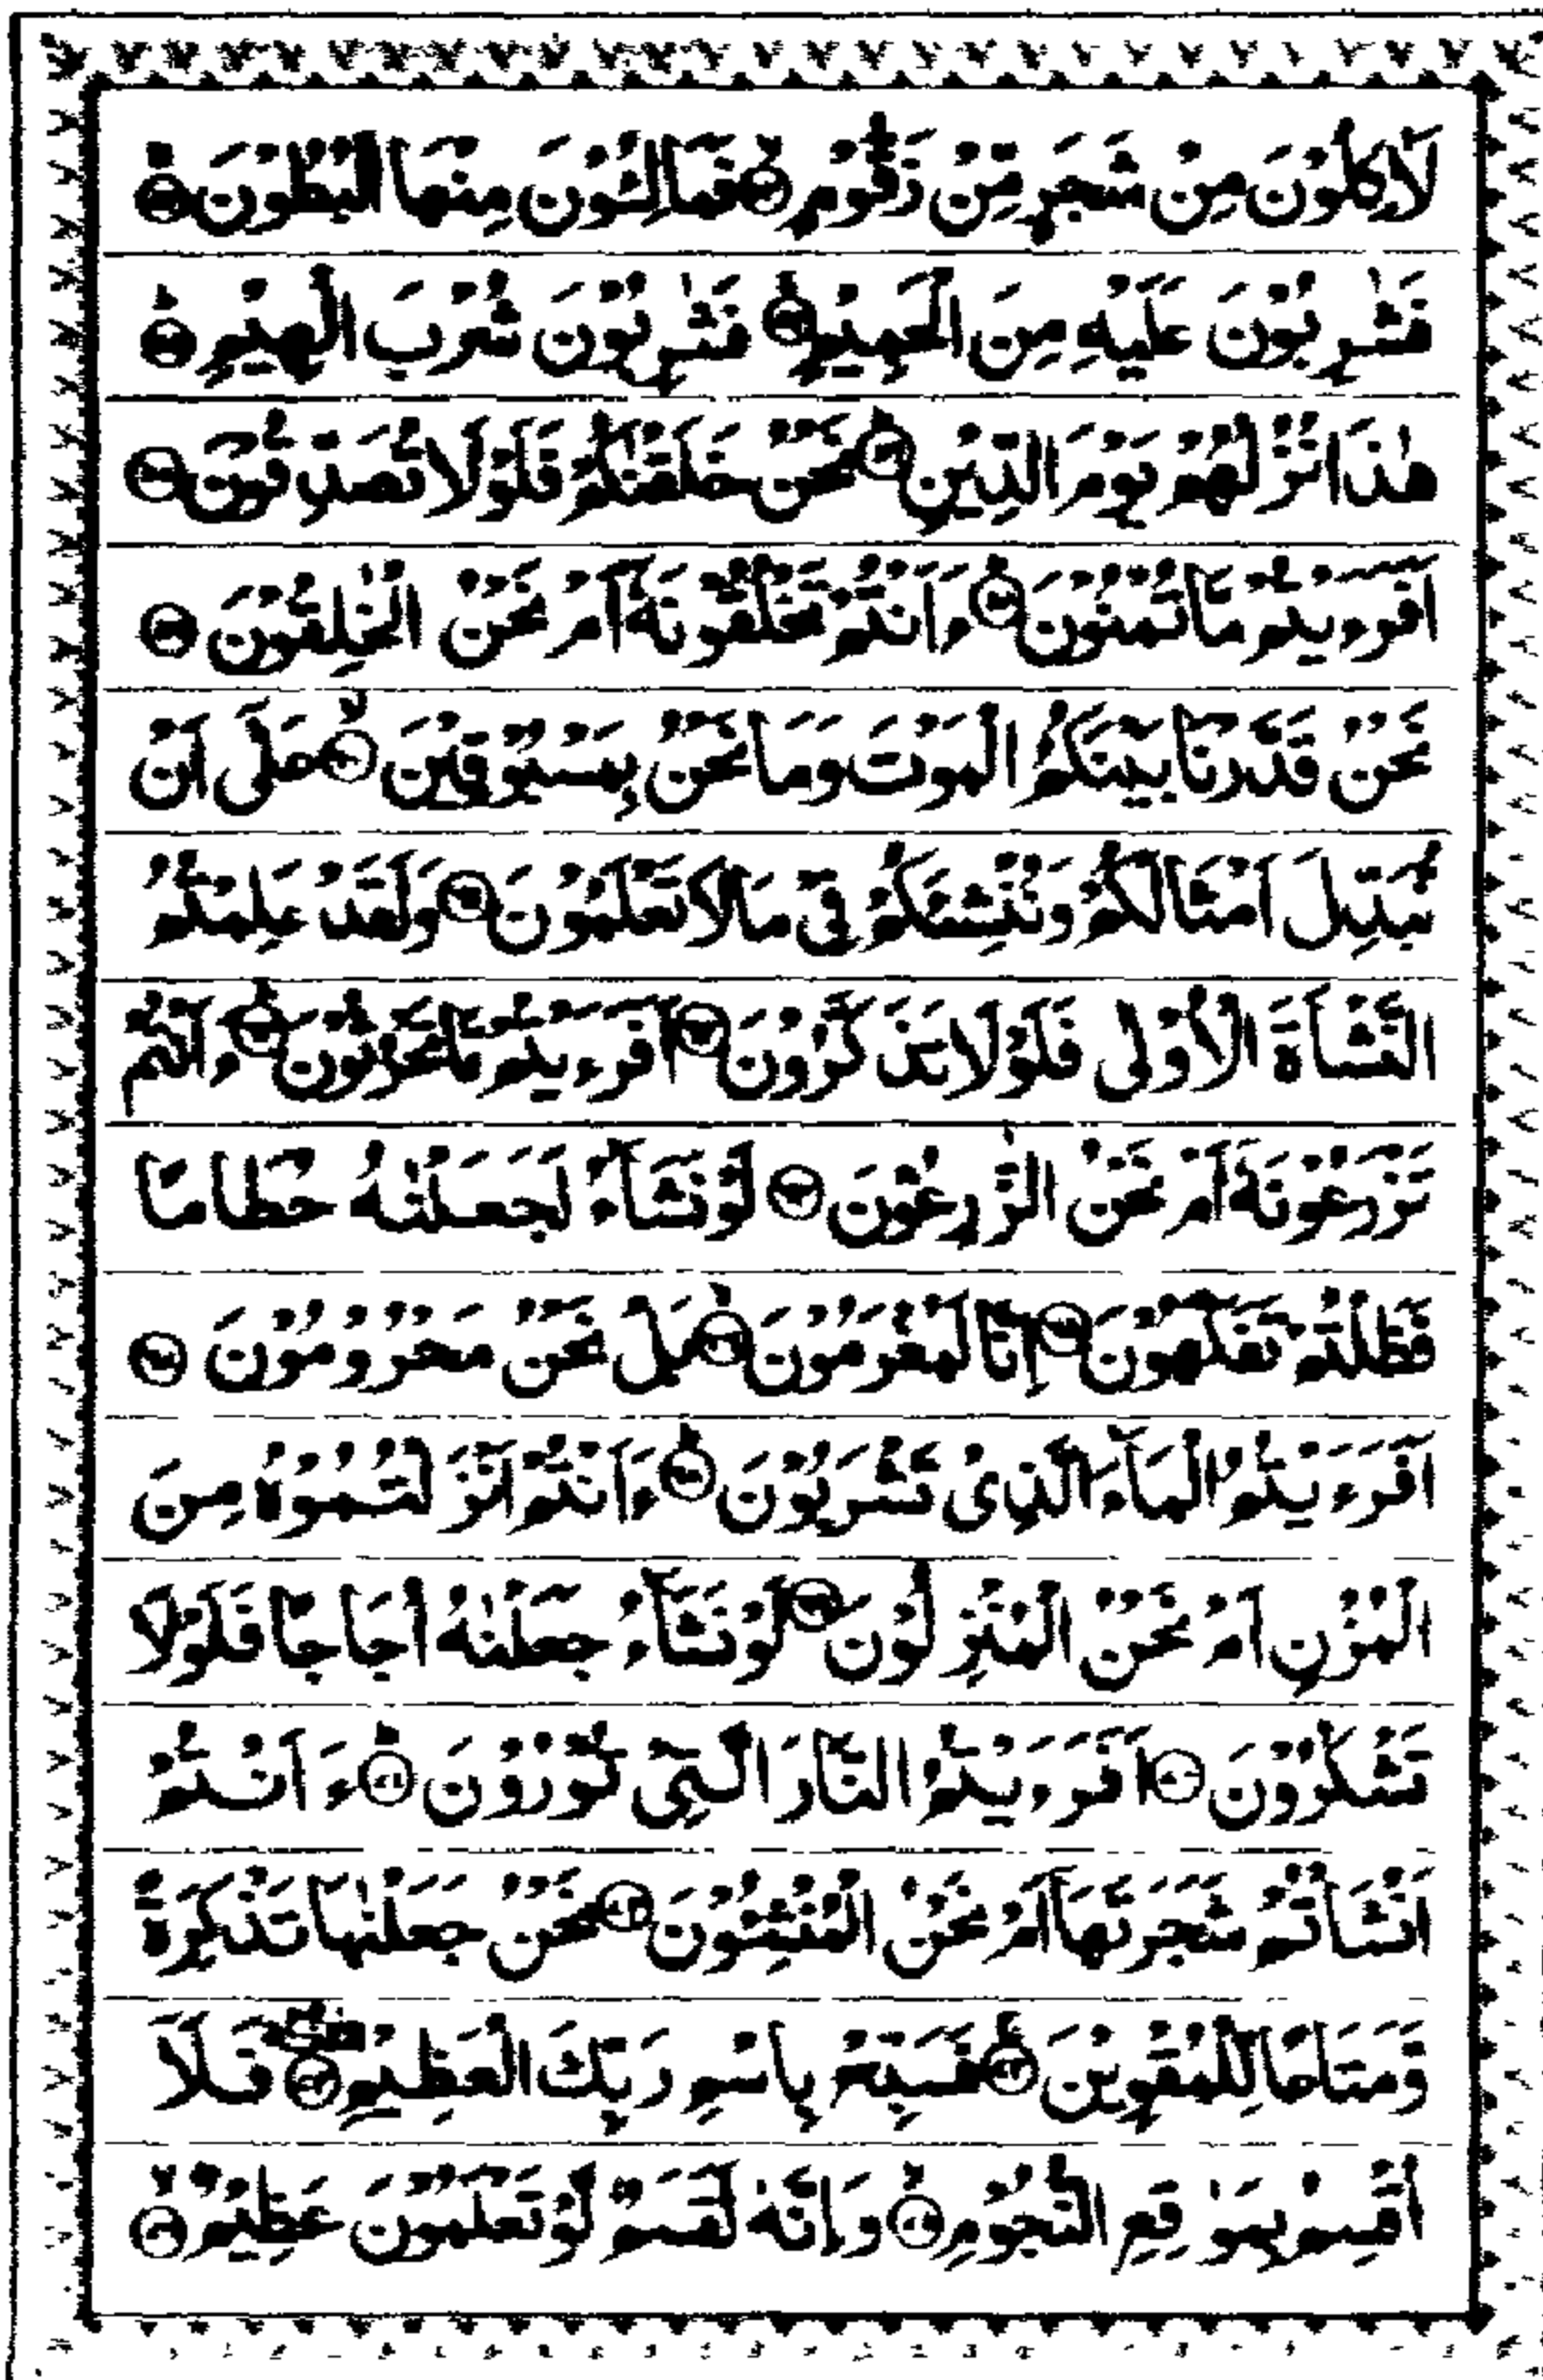 لَاٰكِلُوۡنَ مِنۡ شَجَرٍ مِّنۡ زَقُّوۡمٍ ۙ﴿۵۲﴾ فَمَالِـُٔوۡنَ مِنۡهَا الۡبُطُوۡنَ ۚ﴿۵۳﴾
فَشٰرِبُوۡنَ عَلَيۡهِ مِنَ الۡحَمِيۡمِ ۚ﴿۵۴﴾ فَشٰرِبُوۡنَ شُرۡبَ الۡهِيۡمِ ؕ﴿۵۵﴾
هٰذَا نُزُلُهُمۡ يَوۡمَ الدِّيۡنِ ؕ﴿۵۶﴾ نَحۡنُ خَلَقۡنٰكُمۡ فَلَوۡلَا تُصَدِّقُوۡنَ ﴿۵۷﴾
اَفَرَءَيۡتُمۡ مَّا تُمۡنُوۡنَ ؕ﴿۵۸﴾ ءَاَنۡتُمۡ تَخۡلُقُوۡنَهٗۤ اَمۡ نَحۡنُ الۡخٰلِقُوۡنَ ﴿۵۹﴾
نَحۡنُ قَدَّرۡنَا بَيۡنَكُمُ الۡمَوۡتَ وَمَا نَحۡنُ بِمَسۡبُوۡقِيۡنَ ۙ﴿۶۰﴾ عَلٰٓى اَنۡ
نُّبَدِّلَ اَمۡثَالَكُمۡ وَنُنۡشِئَكُمۡ فِىۡ مَا لَا تَعۡلَمُوۡنَ ﴿۶۱﴾ وَلَقَدۡ عَلِمۡتُمُ
النَّشۡاَةَ الۡاُوۡلٰى فَلَوۡلَا تَذَكَّرُوۡنَ ﴿۶۲﴾ اَفَرَءَيۡتُمۡ مَّا تَحۡرُثُوۡنَ ؕ﴿۶۳﴾ ءَاَنۡتُمۡ
تَزۡرَعُوۡنَهٗۤ اَمۡ نَحۡنُ الزّٰرِعُوۡنَ ﴿۶۴﴾ لَوۡ نَشَآءُ لَجَعَلۡنٰهُ حُطَامًا
فَظَلۡتُمۡ تَفَكَّهُوۡنَ ﴿۶۵﴾ اِنَّا لَمُغۡرَمُوۡنَ ۙ﴿۶۶﴾ بَلۡ نَحۡنُ مَحۡرُوۡمُوۡنَ ﴿۶۷﴾
اَفَرَءَيۡتُمُ الۡمَآءَ الَّذِىۡ تَشۡرَبُوۡنَ ؕ﴿۶۸﴾ ءَاَنۡتُمۡ اَنۡزَلۡتُمُوۡهُ مِنَ
الۡمُزۡنِ اَمۡ نَحۡنُ الۡمُنۡزِلُوۡنَ ﴿۶۹﴾ لَوۡ نَشَآءُ جَعَلۡنٰهُ اُجَاجًا فَلَوۡلَا
تَشۡكُرُوۡنَ ﴿۷۰﴾ اَفَرَءَيۡتُمُ النَّارَ الَّتِىۡ تُوۡرُوۡنَ ؕ﴿۷۱﴾ ءَاَنۡتُمۡ
اَنۡشَاۡتُمۡ شَجَرَتَهَاۤ اَمۡ نَحۡنُ الۡمُنۡشِـُٔوۡنَ ﴿۷۲﴾ نَحۡنُ جَعَلۡنٰهَا تَذۡكِرَةً
وَّمَتَاعًا لِّلۡمُقۡوِيۡنَ ۚ﴿۷۳﴾ فَسَبِّحۡ بِاسۡمِ رَبِّكَ الۡعَظِيۡمِ ﴿۷۴﴾ فَلَاۤ
اُقۡسِمُ بِمَوٰقِعِ النُّجُوۡمِ ۙ﴿۷۵﴾ وَاِنَّهٗ لَقَسَمٌ لَّوۡ تَعۡلَمُوۡنَ عَظِيۡمٌ ۙ﴿۷۶﴾